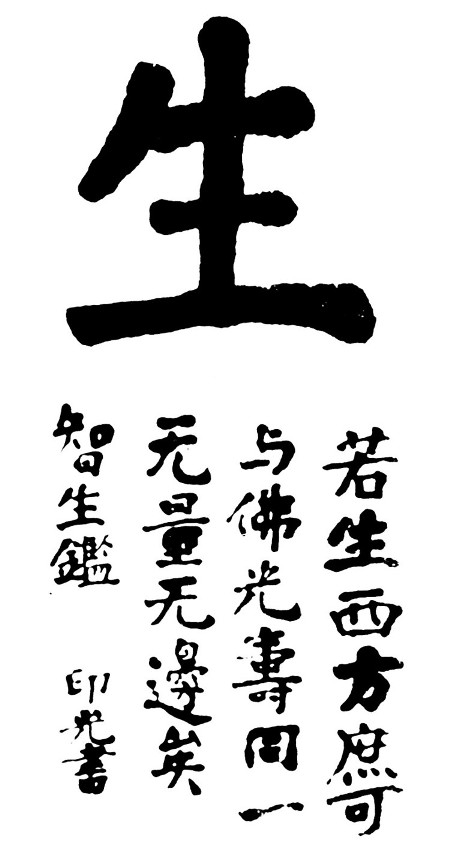 生
若生西方庶可
与佛光壽同一
无量无邊矣
智生鑑
印光書